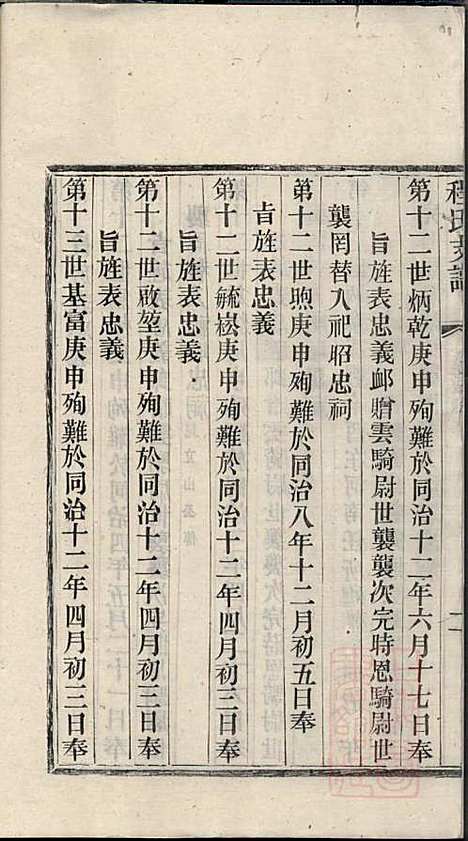 程氏支譜
二
第十二世炳乾庚申殉難於同治十二年六月十七日奉
旨旌表忠義卹贈雲騎尉世襲襲次完時恩騎尉世
襲罔替入祀昭忠祠
第十二世煦庚申殉難於同治八年十二月初五日奉
旨旌表忠義
第十二世毓崧庚申殉難於同治十二年四月初三日奉
旨旌表忠義
第十二世啟堃庚申殉難於同治十二年四月初三日奉
旨旌表忠義
第十三世基富庚申殉難於同治十二年四月初三日奉